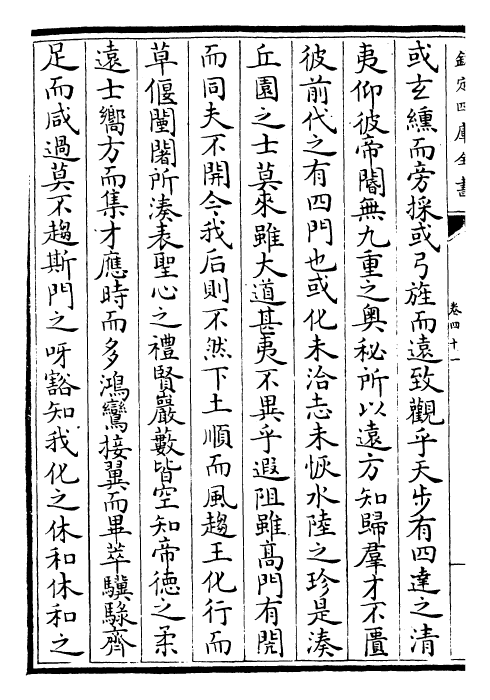 欽定四庫全書
卷四十一
或玄纁而旁採或弓旌而遠致觀乎天步有四達之清
夷仰彼帝閽無九重之奥秘所以遠方知歸羣才不匱
彼前代之有四門也或化未洽志未恢水陸之珍是湊
丘園之士莫來雖大道甚夷不異乎遐阻雖高門有閌
而同夫不開今我后則不然下土順而風趨王化行而
草偃闉闍所湊表聖心之禮賢巖藪皆空知帝德之柔
遠士嚮方而集才應時而多鴻鸞接翼而畢萃驥騄齊
足而咸過莫不趨斯門之呀豁知我化之休和休和之